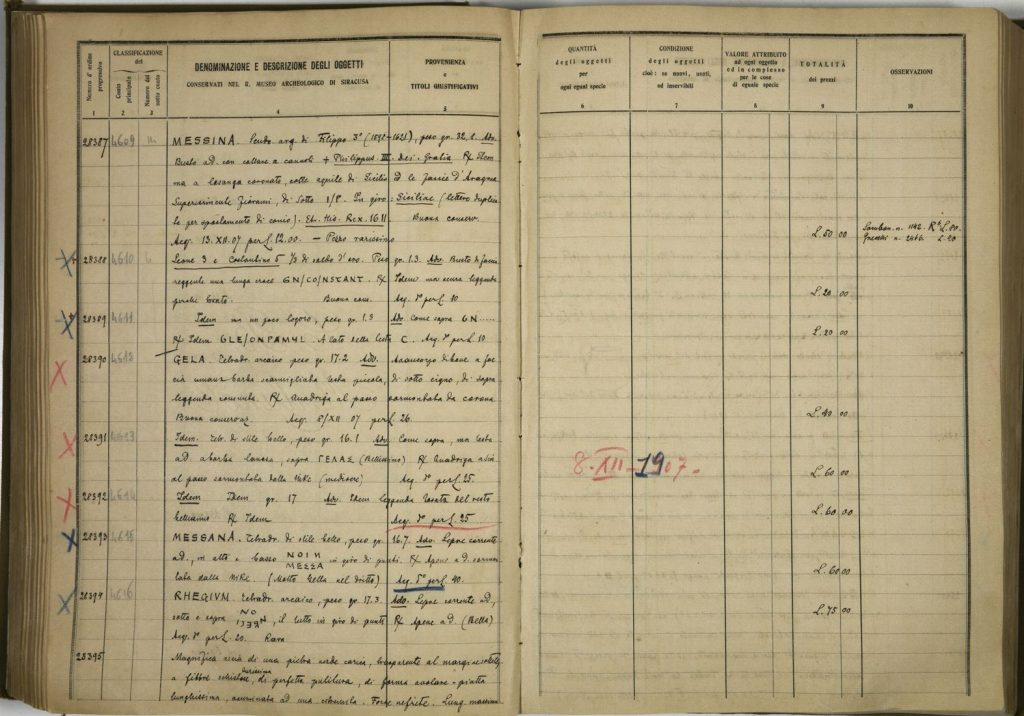 Numero d'ordine progressivo
CLASSIFICAZIONE del
Conto principale
Numero del sotto conto
DENOMINAZIONE E DESCRIZIONE DEGLI OGGETTI
CONSERVATI NEL R. MUSEO ARCHEOLOGICO DI SIRACUSA
PROVENIENZA
e
TITOLI GIUSTIFICATIVI
1 2 3 4 5
QUANTITÀ
degli oggetti
per
ogni egual specie
CONDIZIONE
degli oggetti
cioè: se nuovi, usati,
od inservibili
VALORE ATTRIBUITO
ad ogni oggetto
od in complesso
per le cose
di eguale specie
TOTALITÀ
dei prezzi
OSSERVAZIONI
6 7 8 9 10
28387 4609 MESSINA. Scudo arg. di Filippo 3° (1598-1621), peso gr. 32,2. Adv.
Busto a d. con collare a cannoli + Philippus III. dei. Gratia R/ Stem
ma a losanga coronato, colle aquile di Sicilia ed le fascie d'Aragona
di sotto I/P. In giro: Siciliae (lettere duplica
te per spostamento di conio). Et. Hie. Rex. 1611. Buona conserv.
Acq. 13. XII. 07 per L. 12.00. — Pezzo rarissimo
L. 50 00
Sambon. n. 1142. L. 80.
L. 20
28388 4610 Leone 3 e Costantino 5 1/3 di soldo d'oro. Peso gr. 1.3. Adv. Busto di faccia
reggente una lunga croce GN/CO/NSTANT. R/ Idem ma senza leggenda
perché tosato. Buona cons. Acq. 7° per L. 10
L. 20 00
28389 4611 Idem ma un poco logoro, peso gr. 1.3 Adv. Come sopra GN.....
R/ Idem GLE/ONPAMYL. A lato della testa C. Acq. 7° per L. 10
L. 20 00
28390 GELA. Tetradr. arcaico peso gr. 17.2 Adv. Avancorpo di bove a fac
cia umana barba scarmigliata testa piccola, di sotto cigno, di sopra
leggenda consunta. R/ Quadriga al passo sormontata da corona
Buona conservaz. Acq. 8/XII 07 per L 26.
L. 40 00
28391 Idem. Tetr. di stile bello, peso gr. 16.1 Adv. Come sopra, ma testa
a d. a barba lanosa, sopra ΓΕΛΑΣ (Bellissimo) R/ Quadriga a sin
al passo sormontata dalla Nike (mediocre) Acq. 7° per L. 25.
8-XII-1907.
L. 60 00
28392 4614 Idem Idem gr. 17 Adv. Idem leggenda tosata del resto
bellissimo R/ Idem Acq. 7° per L. 25
L. 60 00
28393 4615 MESSANA. Tetradr. di stile bello, peso gr. 16.7. Adv. Lepre corrente
a d., in alto e basso NOIN MEZZA in giro di punti. R/ Apene a d. sormon
tata dalla Nike. (Molto bella nel dritto) Acq. per L. 40.
L. 60 00
28394 4616 RHEGIVM. Tetradr. arcaico, peso gr. 17.3. Adv. Lepre corrente a d,
sotto e sopra, il tutto in giro di punti R/ Apene a d. (Bella)
Acq. 7° per L. 20. Rara
L. 75 00
28395 Magnifica ascia di una pietra verde carica, trasparente al margine
a fibre schistose, durissima di perfetta pulitura, di forma ovolare-piatta
lunghissima, acuminata ad una estremità. Forse nefrite. Lung. massima